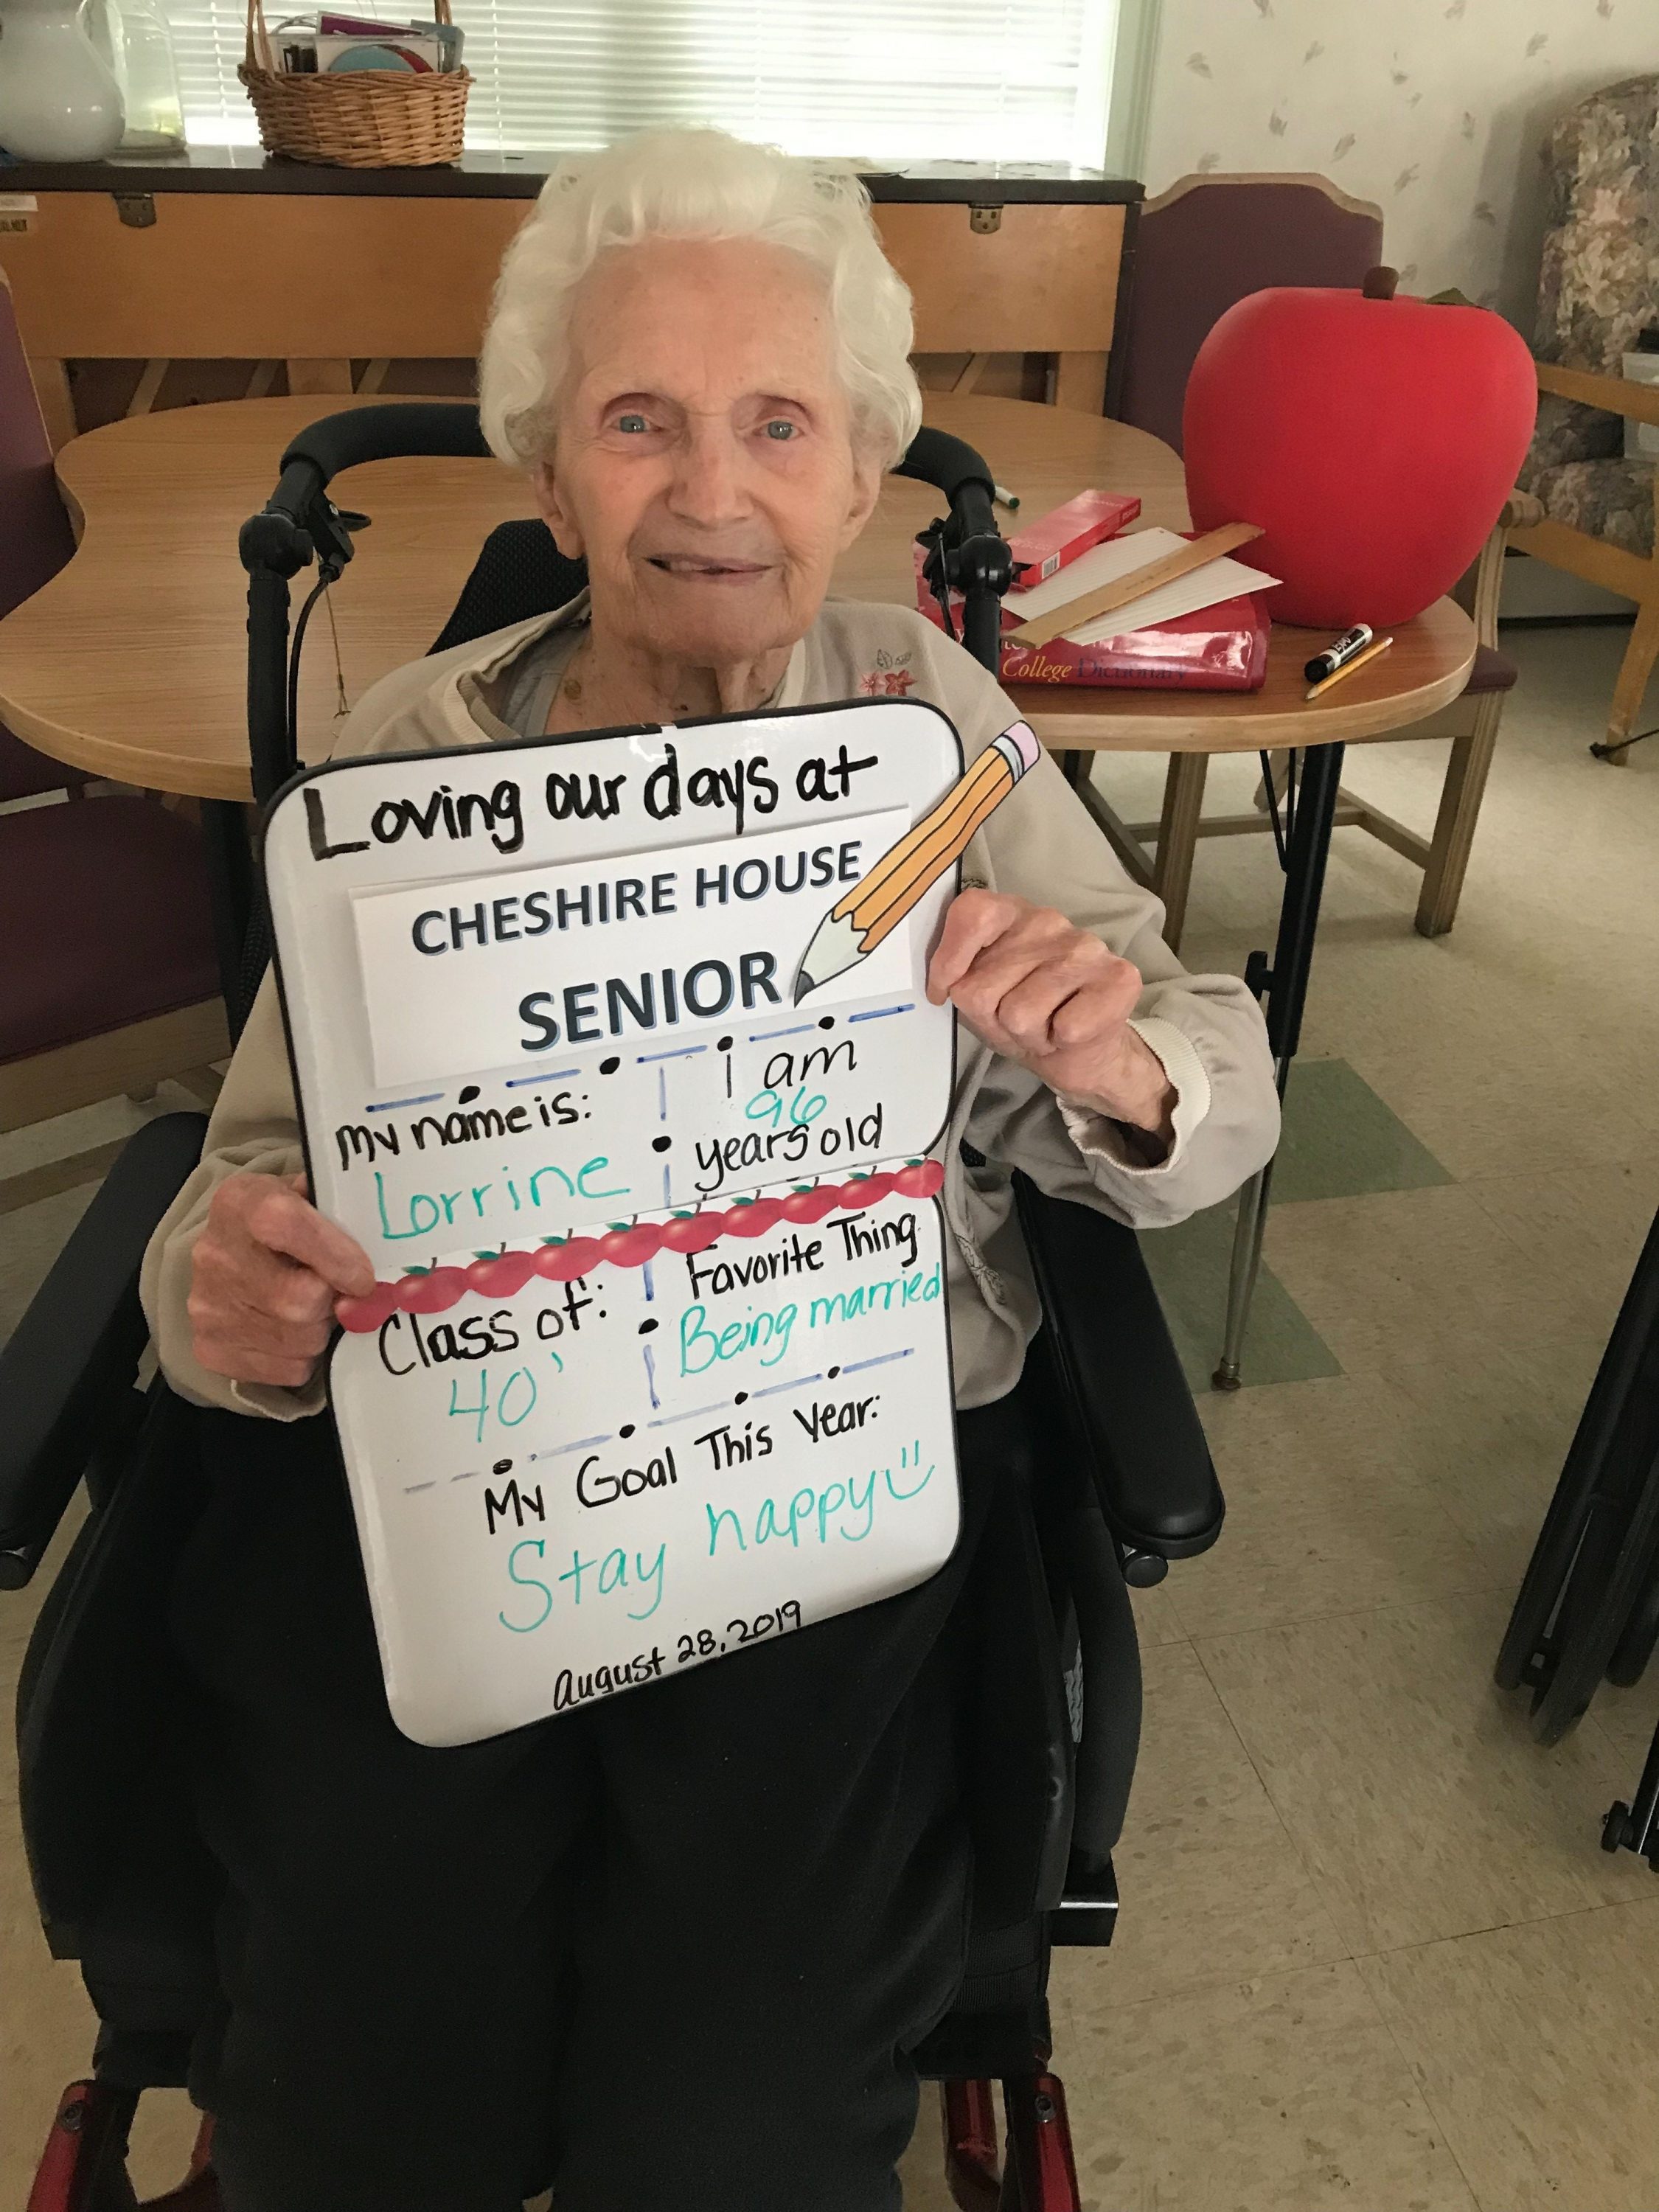 Loving our days at
CHESHIRE HOUSE
SENIOR
My name is:
Lorrine
I am
96
years old
Class of:
40'
Favorite Thing
Being married
My Goal This Year:
Stay happy
August 28, 2019
College Dictionary
EXPO